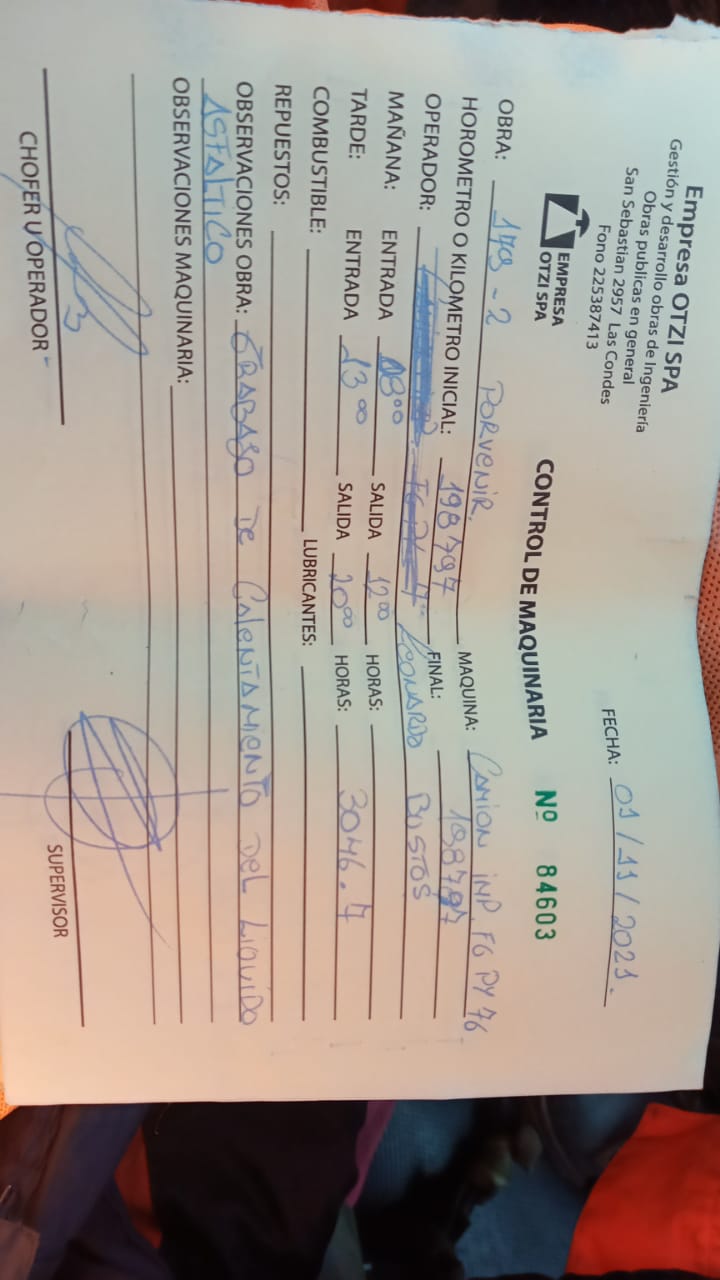 Empresa OTZI SPA
Gestión y desarrollo obras de Ingeniería
Obras publicas en general
San Sebastian 2957 Las Condes
Fono 225387413
EMPRESA
OTZI SPA
FECHA: 01/11/2021.
CONTROL DE MAQUINARIA Nº 84603
OBRA: 179-2 PORVENIR. MAQUINA: CAMION IMP. FG PY 76
HOROMETRO O KILOMETRO INICIAL: 198797 FINAL: 198797
OPERADOR: LEONARDO BUSTOS
MAÑANA: ENTRADA 08⁰⁰ SALIDA 12⁰⁰ HORAS:
TARDE: ENTRADA 13⁰⁰ SALIDA 20⁰⁰ HORAS: 3046.7
COMBUSTIBLE: LUBRICANTES:
REPUESTOS:
OBSERVACIONES OBRA: TRABAJO DE CALENTAMIENTO DEL LIQUIDO
ASFALTICO
OBSERVACIONES MAQUINARIA:
CHOFER U OPERADOR SUPERVISOR